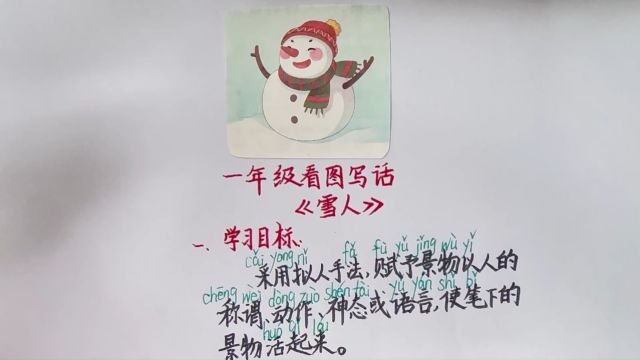 一年级看图写话
《雪人》
一、学习目标:
cǎi yòng nǐ fǎ fù yǔ jǐng wù yǐ
采用拟人手法,赋予景物以人的
chēng wèi dòng zuò shén tài yǔ yán shǐ bǐ
称谓、动作、神态或语言,使笔下的
huó qǐ lái
景物活起来。